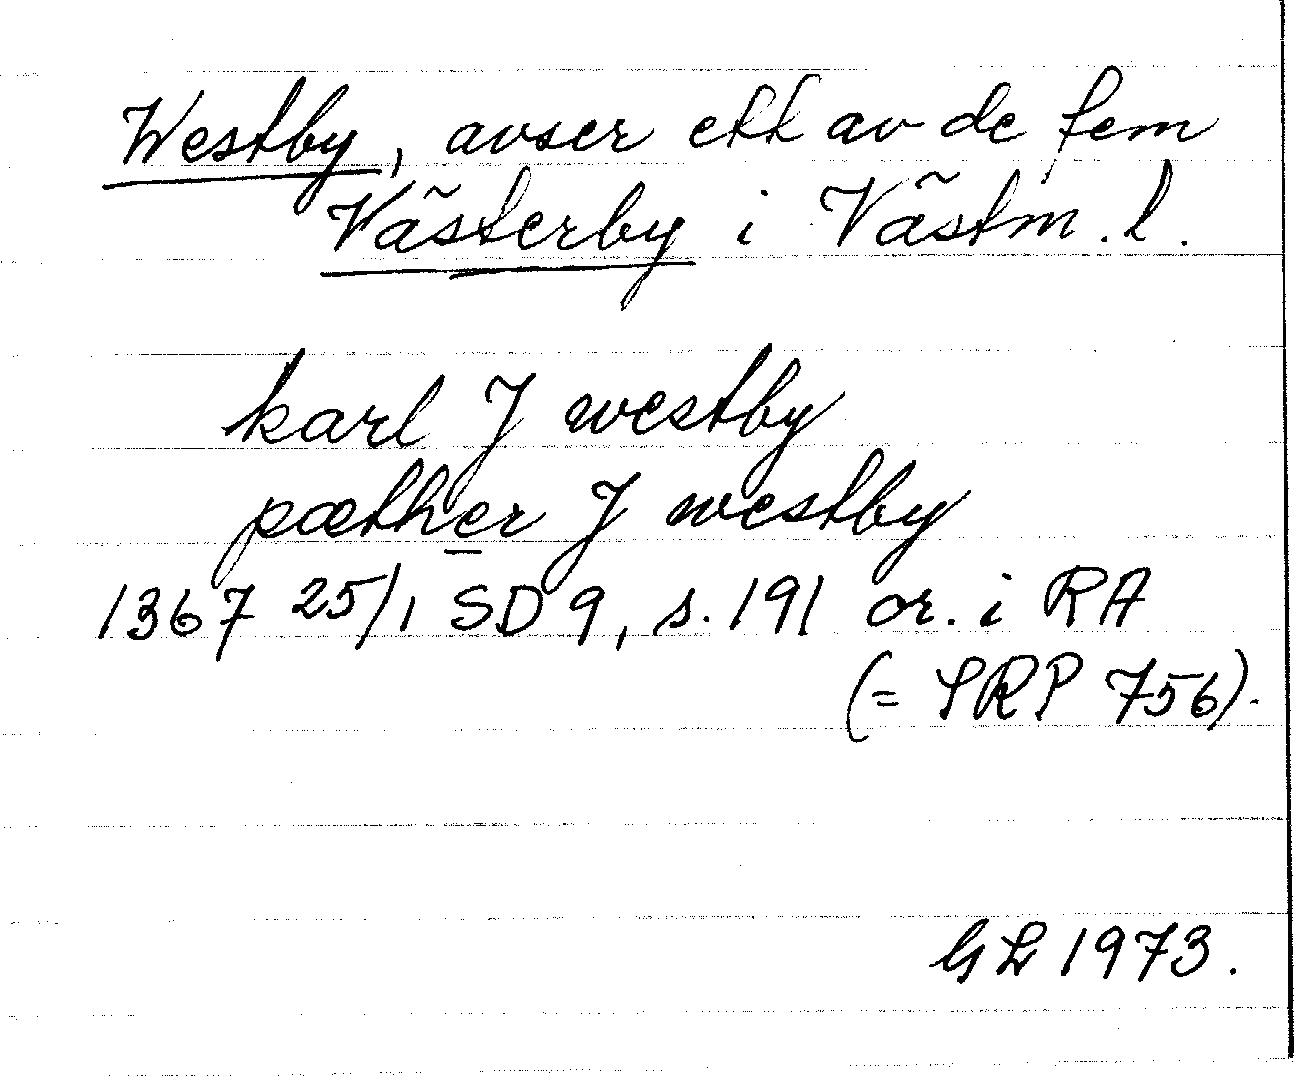 Westby, avser ett av de fem
Västerby i Västm. l.
karl J westby
pæther J westby
1367 25/1 SD 9, s. 191 or. i RA
(= SRP 756).
GL 1973.